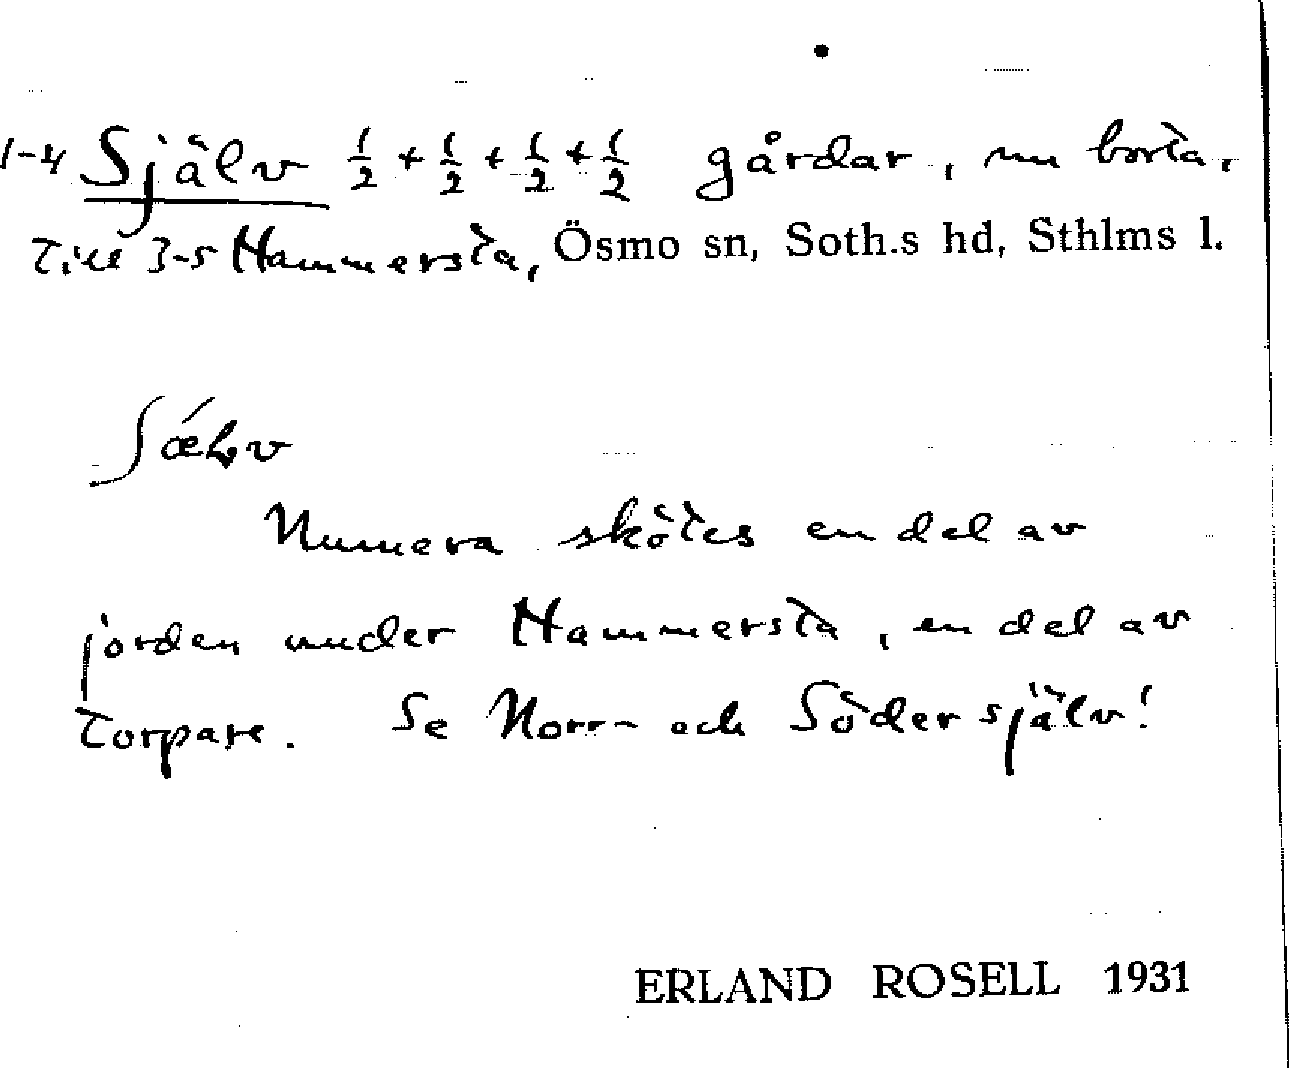 1-4 Själv ½ + ½ + ½ + ½ gårdar, nu borta,
Till 3-5 Hammersta, Ösmo sn, Soth.s hd, Sthlms l.
Numera skötes en del av
jorden under Hammersta, en del av
Torpare. Se Norr- och Södersjälv!
ERLAND ROSELL 1931